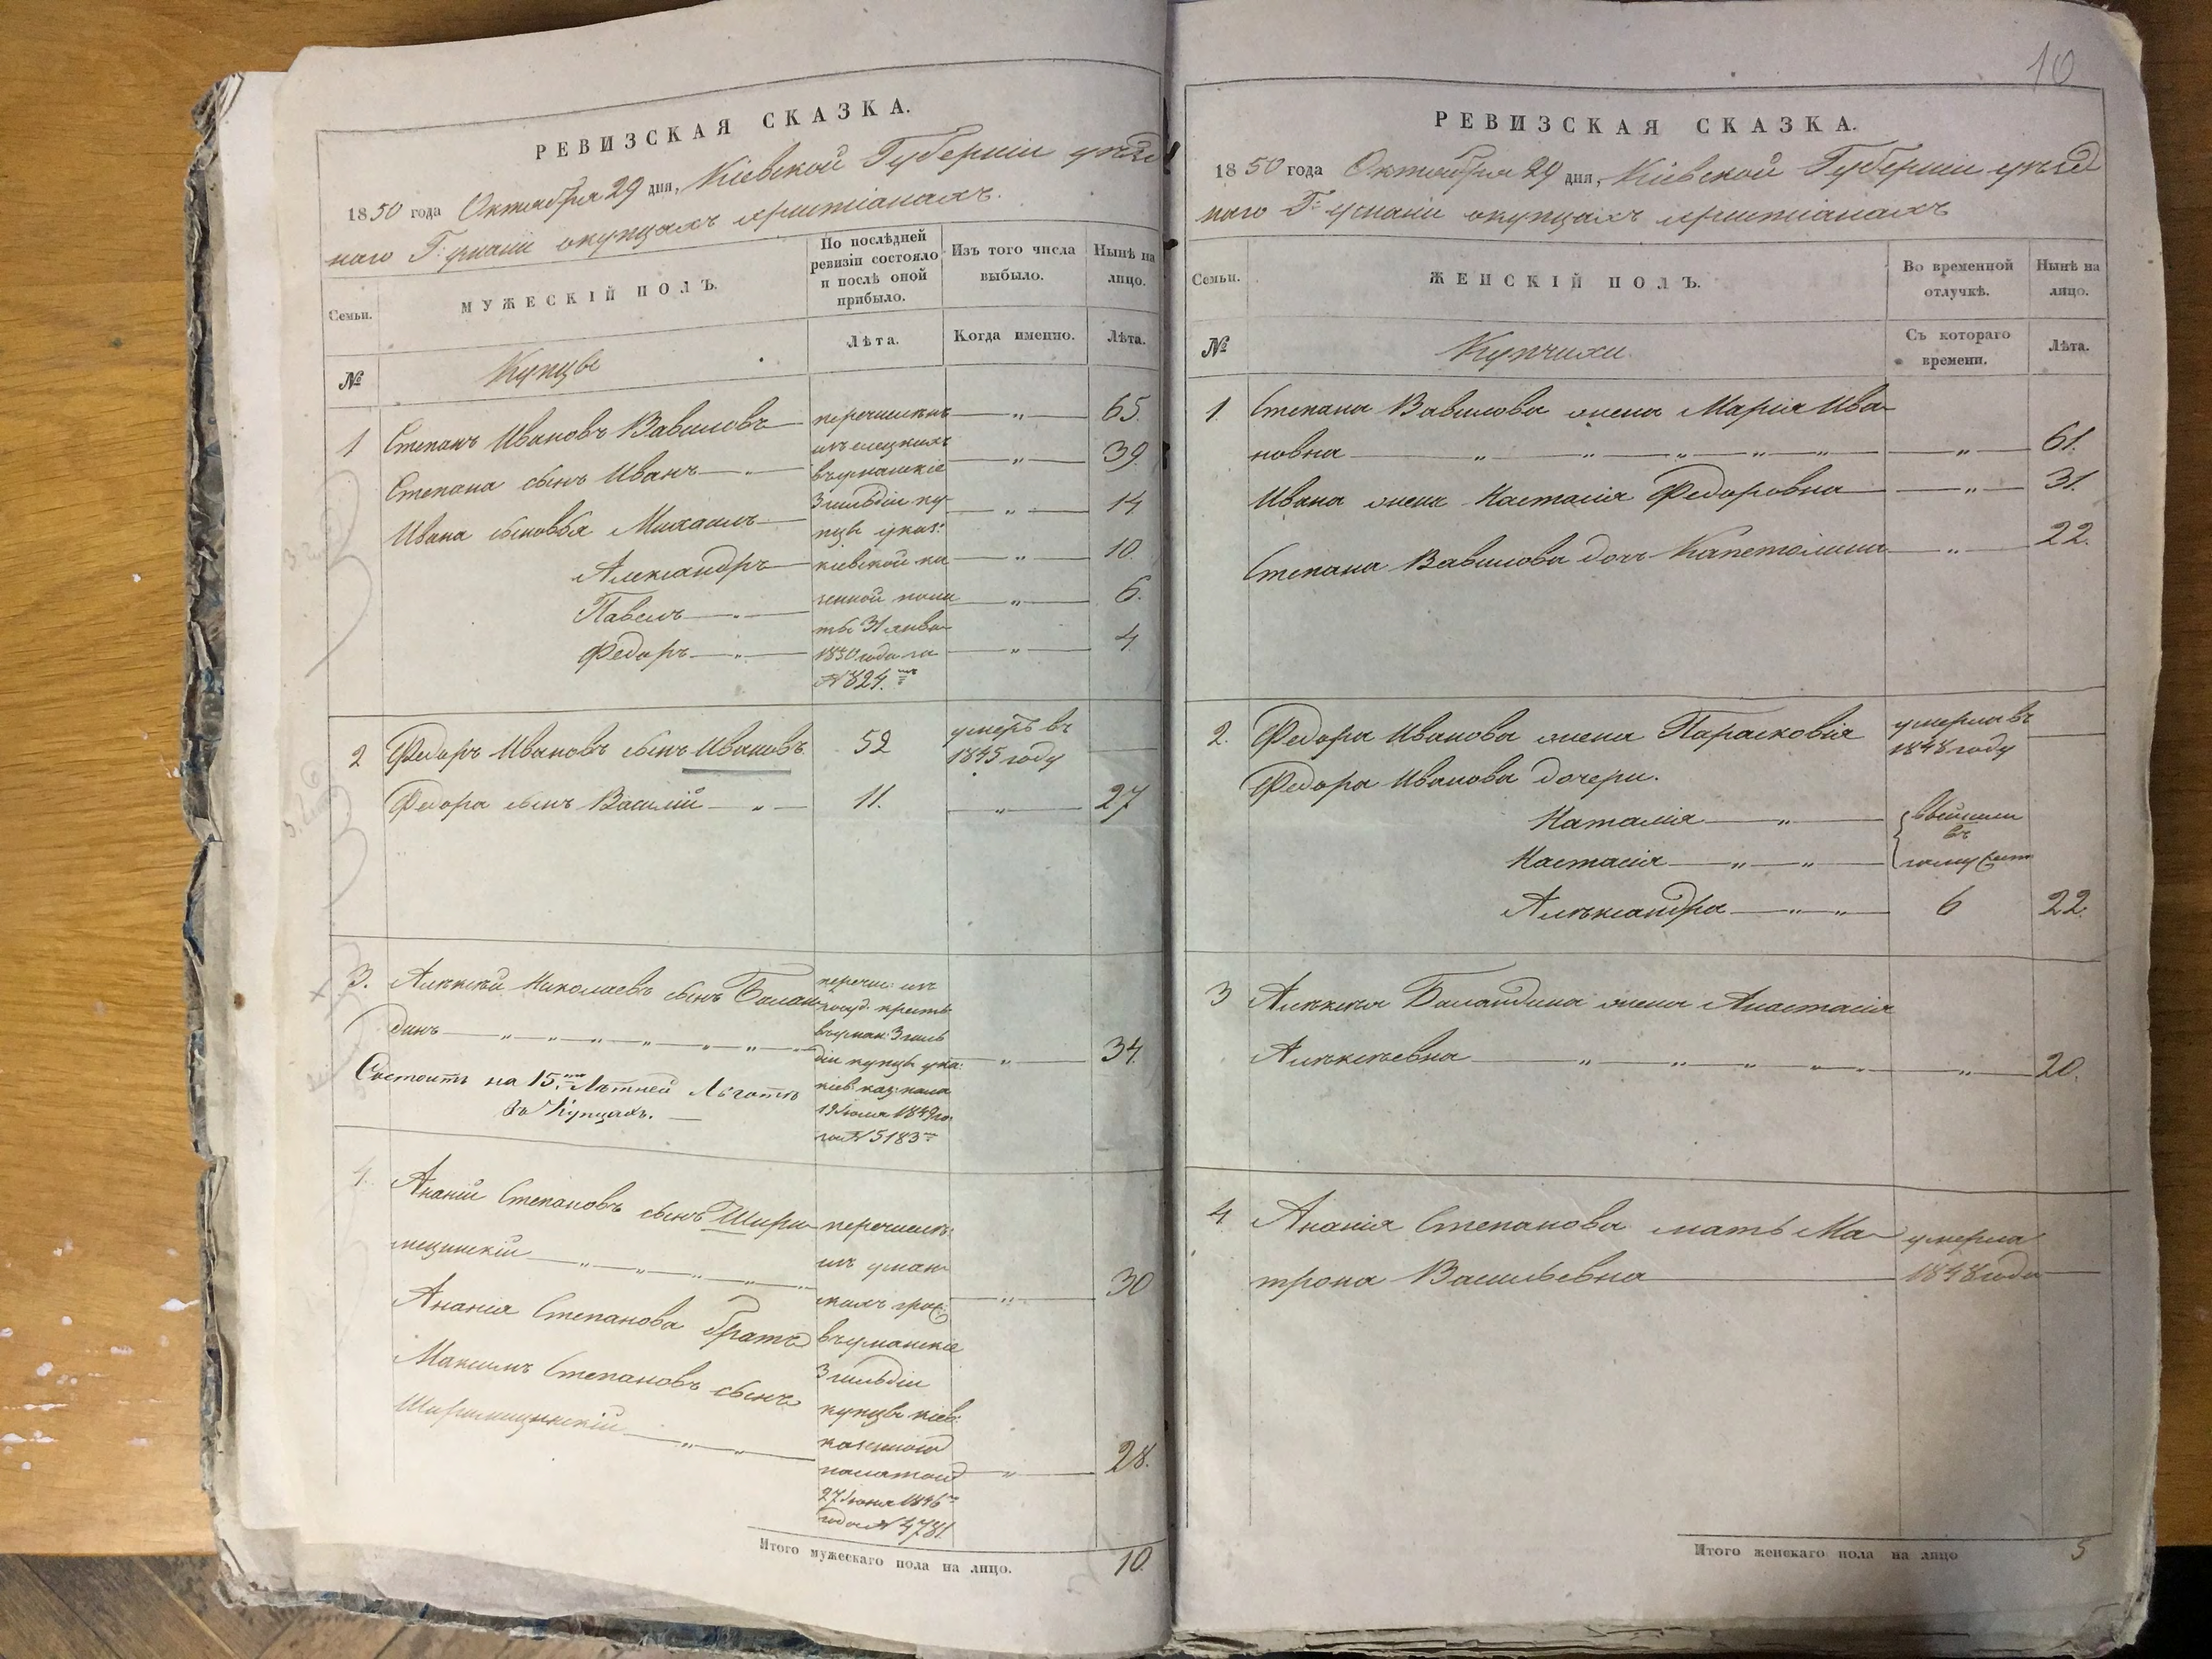 РЕВИЗСКАЯ СКАЗКА.
1850 года Октября 29 дня, Кіевской Губерніи уѣзд
наго Г: Умани о купцахъ христіанахъ.
Семьи.
МУЖЕСКІЙ ПОЛЪ.
По послѣдней
ревизіи состояло
и послѣ оной
прибыло.
Изъ того числа
выбыло.
Нынѣ на
лицо.
№
Купцы
Лѣта.
Когда именно.
Лѣта.
1 Степанъ Ивановъ Вавиловъ — " — 65.
Степана сынъ Иванъ — " — " — 39.
Ивана сыновья Михаилъ — " — 14
Александръ — " — 10.
Павелъ — " — " — 6.
Федоръ — " — " — 4
перечислены
изъ елецкихъ
въ уманскіе
3 гильдіи ку-
пцы указ:
кіевской ка
зенной пала
ты 31 янва
1850 года за
№ 824.
2 Федоръ Ивановъ сынъ Ивановъ 52 умеръ въ
1845 году
Федора сынъ Василій — " — 11. — " — 27
3. Алексѣй Николаевъ сынъ Балан-
динъ — " — " — " — " — " — " — 34.
Состоитъ на 15ти Лѣтней Льготѣ
въ Купцахъ. —
перечис: изъ
госуд: крестъ
въ уман: 3 гиль
діи купцы ука:
кіев: каз: пала
№ 5183
4. Ананій Степановъ сынъ Шири-
мецинскій — " — " — " — " — " — 30
Ананія Степанова братъ
Максимъ Степановъ сынъ
— " — " — " — 28.
перечислен:
изъ уман-
скихъ
въ уманскіе
3 гильдіи
купцы кіев:
казенною
палатою
27 Іюня 1846
года № 4781.
Итого мужескаго пола на лицо. 10.
10
РЕВИЗСКАЯ СКАЗКА.
1850 года Октября 29 дня, Кіевской Губерніи уѣзд
наго Г: Умани о купцахъ христіанахъ
Семьи.
ЖЕНСКІЙ ПОЛЪ.
Во временной
отлучкѣ.
Нынѣ на
лицо.
№
Купчихи.
Съ котораго
времени.
Лѣта.
1. Степана Вавилова жена Марія Ива-
новна — " — " — " — " — " — " — 61.
Ивана жена Настасія Федоровна — " — 31.
Степана Вавилова дочь Капетолина — " — 22.
2. Федора Иванова жена Парасковія умерла въ
1848 году
Федора Иванова дочери.
Наталія — " —
Настасія — " — " —
въ
Александра — " — " — 6 22.
3 Алексѣя Баландина жена Анастасія
Алексѣевна — " — " — " — " — " — " — 20.
4 Ананія Степанова мать Ма- умерла
трона Васильевна — 1848 года
Итого женскаго пола на лицо 5